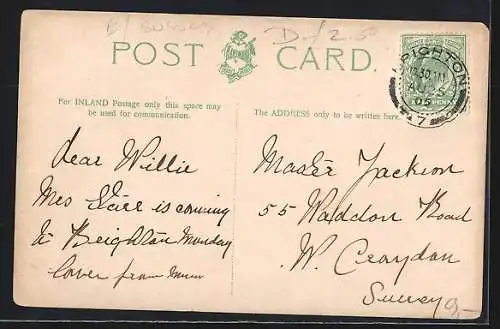 D/ 2.50
POST CARD.
For INLAND Postage only this space may
be used for communication.
The ADDRESS only to be written here.
BRIGHTON
AU 5
05
dear Willie
Mrs is coming
to Brighton Monday
love from Mum
Master Jackson
55 Waddon Road
W. Croydon
Surrey
9,-